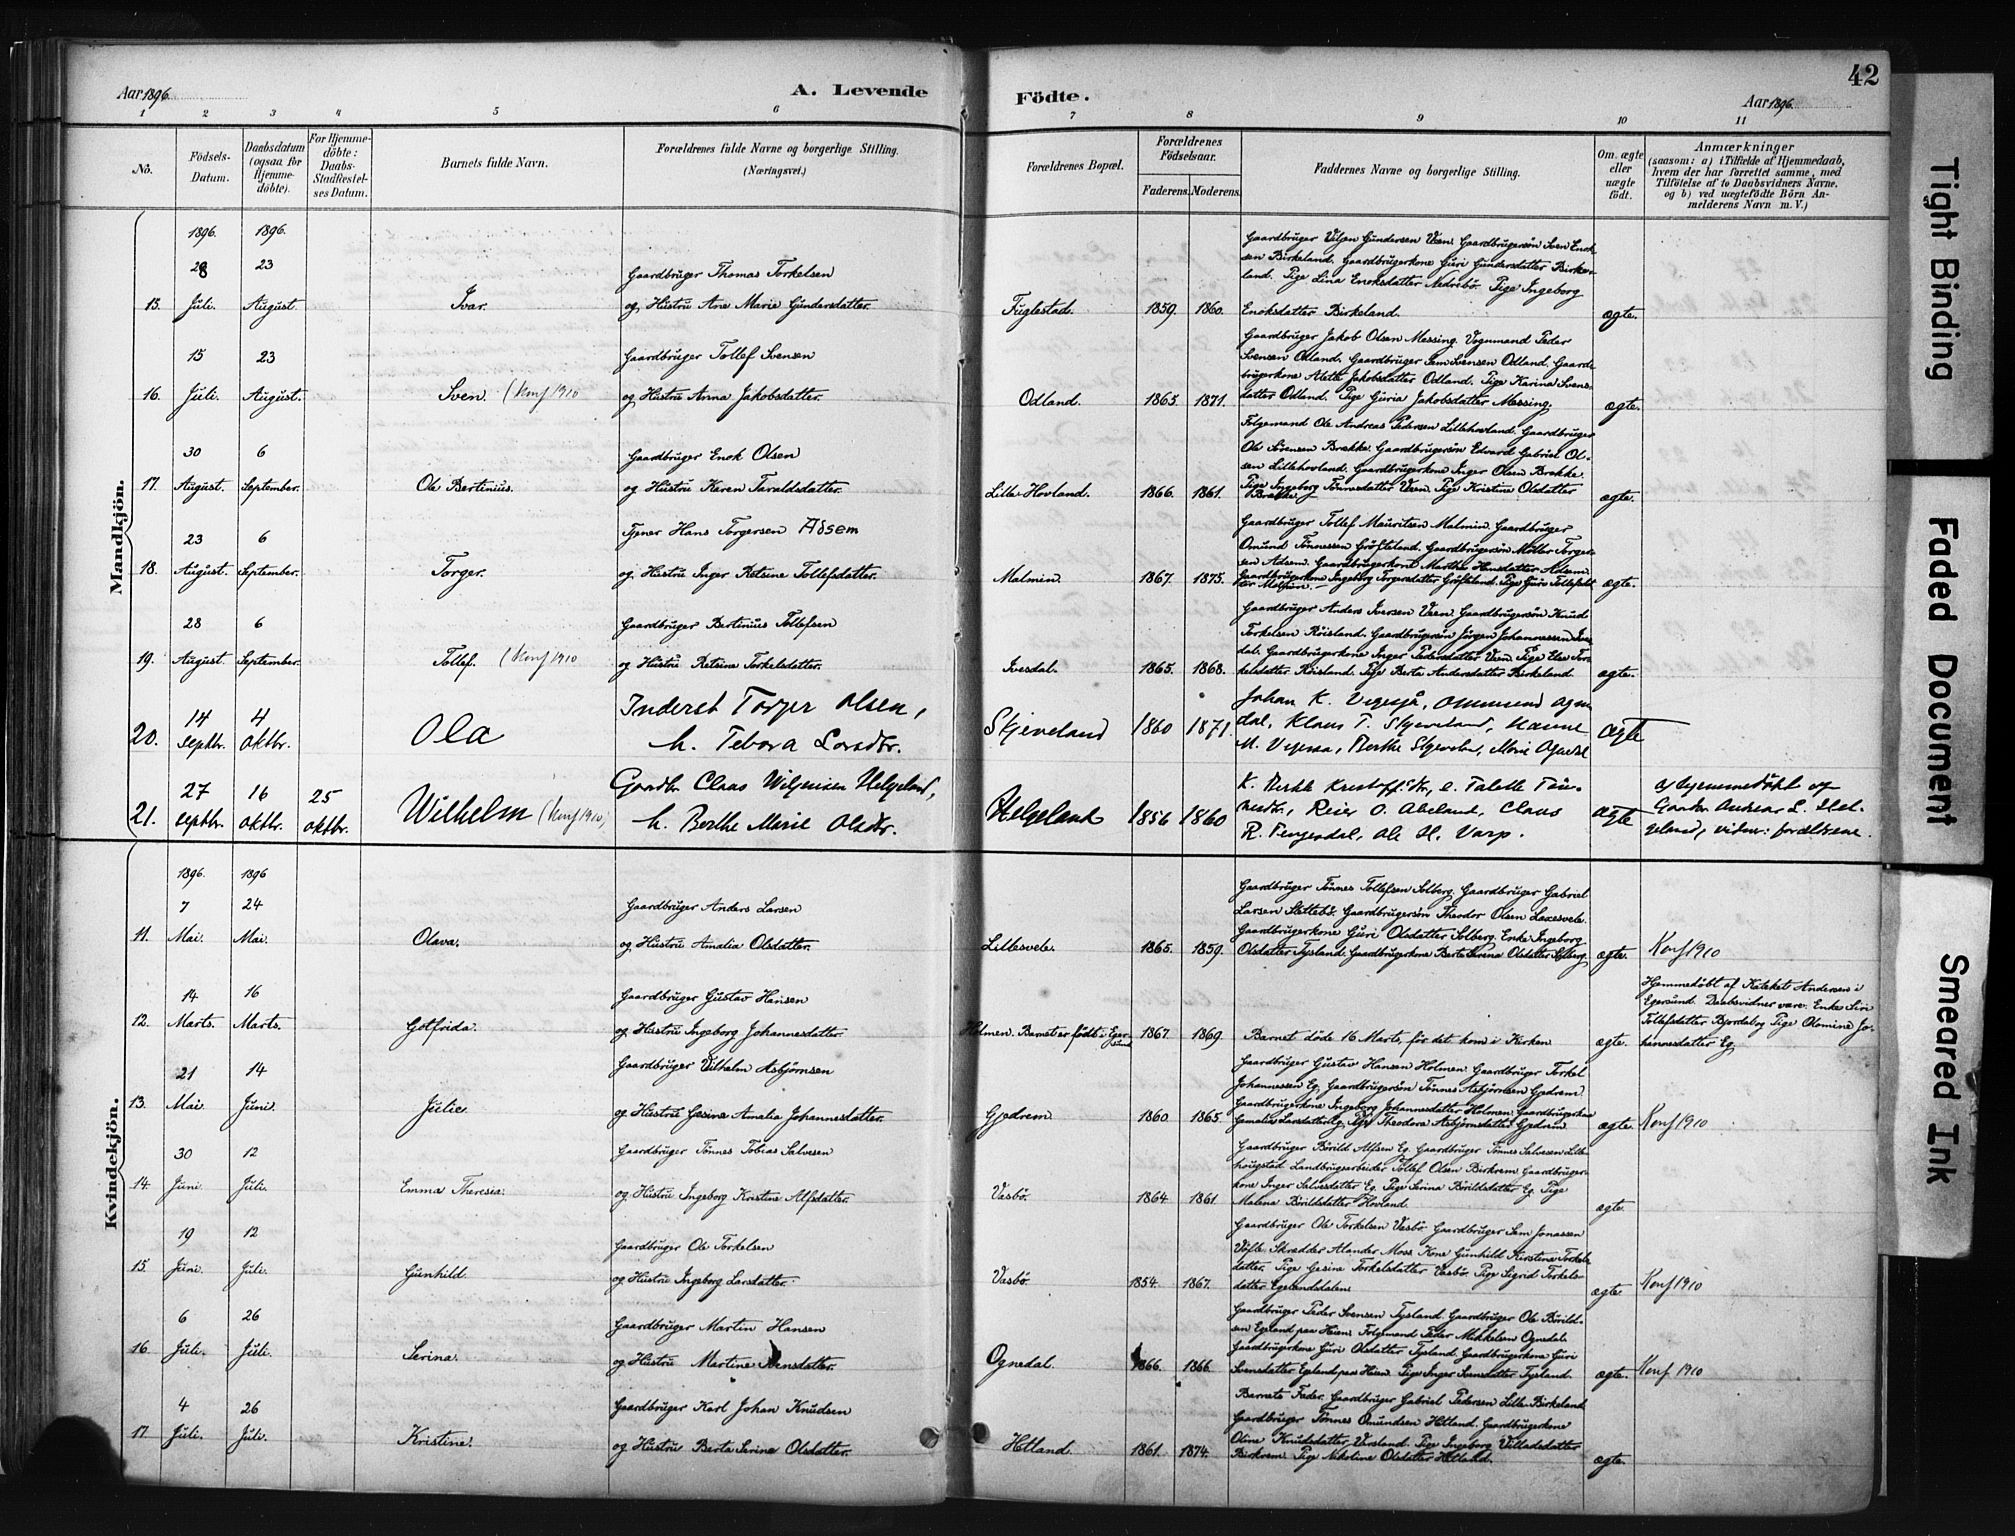 Aar 1896.
A. Levende
Födte.
Aar 1896.
42
1 2 3 4 5 6 7 8 9 10 11
No.
Födsels-
Datum.
Daabsdatum
(ogsaa for
Hjemme-
döbte).
For Hjemme-
döbte:
Daabs-
Stadfæstel-
ses Datum.
Barnets fulde Navn.
Forældrenes fulde Navne og borgerlige Stilling.
(Næringsvei.)
Forældrenes Bopæl.
Forældrenes
Födselsaar.
Faderens. Moderens.
Faddernes Navne og borgerlige Stilling.
Om ægte
eller
uægte
födt.
Anmærkninger
(saasom: a) i Tilfælde af Hjemmedaab,
hvem der har forrettet samme, med
Tilföielse af to Daabsvidners Navne,
og b) ved uægtefödte Börn An-
melderens Navn m. V.)
Mandkjön.
1896. 1896.
28 23
15. Juli. August. Ivar.
Gaardbruger Thomas Torkelsen
og Hustru Ane Marie Gundersdatter.
Fuglestad. 1859. 1860.
Gaardbruger Gundersen Veen. Gaardbrugersön Sven Enok-
sen Birkeland. Gaardbrugerkone Guri Gundersdatter Birke-
land. Pige Lina Enoksdatter Nedrebö. Pige Ingeborg
Enoksdatter Birkeland.
ægte.
15 23
16. Juli. August. Sven. (Konf 1910
Gaardbruger Tollef Svensen
og Hustru Anna Jakobsdatter.
Odland. 1865. 1871.
Gaardbruger Jakob Olsen Messing. Vognmand Peder
Svensen Odland. Gaardbruger Sem Svensen Odland. Gaard-
brugerkone Alette Jakobsdatter Odland. Pige Karina Svens-
datter Odland. Pige Guria Jakobsdatter Messing.
ægte.
30 6
17. August. September. Ole Bertinius.
Gaardbruger Enok Olsen
og Hustru Karen Taraldsdatter.
Lille-Hovland. 1866. 1861.
Folgemand Ole Andreas Pedersen Lillehovland. Gaardbruger
Ole Sörensen Brække. Gaardbrugersön Edvard Gabriel Ol-
sen Lillehovland. Gaardbrugerkone Inger Olsen Brække.
Pige Ingeborg Tönnesdatter Veen. Pige Kristine Olsdatter
Brække.
ægte.
23 6
18. August. September. Torger.
Tjener Hans Torgersen Adsem
og Hustru Inger Retsine Tollefsdatter.
Malmin. 1867. 1875.
Gaardbruger Tollef Mauritsen Malmin. Gaardbruger
Omund Tönnessen Gröfteland. Gaardbrugersön Torger-
sen Adsem. Gaardbrugerkone Marthe Hansdatter Adsem.
Gaardbrugerkone Ingeborg Torgersdatter Gröfteland. Pige Guro Tollefsdat-
ter Malmin.
ægte.
28 6
19. August. September. Tollef. (Konf 1910
Gaardbruger Bertinius Tollefsen
og Hustru Retsine Torkelsdatter.
Ivesdal. 1865. 1868.
Gaardbruger Anders Iversen Veen. Gaardbrugersön Knud
Torkelsen Röisland. Gaardbrugersön Jörgen Johannessen Ives-
dal. Gaardbrugerkone Inger Pedersdatter Veen. Pige Else Tor-
kelsdatter Röisland. Pige Berta Andersdatter Birkeland.
ægte.
14 4
20. septbr. oktbr. Ola
Inderst Torger Olsen,
h. Tebora Larsdtr.
Skjeveland 1860 1871
Johan K. Omund Ogn
dal, Klaus T. Skjeveland, Hanne
M. Berthe Marie
ægte
27 16 25
21. septbr. oktbr. oktbr. Wilhelm (Konf 1910,
Gaardbr. Claas Helgeland,
h. Berthe Marie Olsdtr.
Helgeland 1856 1860
K. Berthe e. Talette Tön-
nesdtr, Reier O. Abeland, Claus
R. Fengesdal, Ole H. Varp.
ægte
a) hjemmedöbt af
Gaardbr Andreas L. Hel-
geland, vidner: forældrene.
Kvindekjön.
1896. 1896
7 24
11. Mai. Mai. Olava.
Gaardbruger Anders Larsen
og Hustru Amalia Olsdatter.
Lillesvele. 1865. 1859.
Gaardbruger Tönnes Tollefsen Solberg. Gaardbruger Gabriel
Larsen Slettebö. Gaardbrugersön Theodor Olsen Laxesvele.
Gaardbrugerkone Guri Olsdatter Solberg. Enke Ingeborg
Olsdatter Tysland. Gaardbrugerkone Berta Serena Olsdatter Solberg.
ægte. Konf 1910
14 16
12. Marts. Marts. Gotfrida.
Gaardbruger Gustav Hansen
og Hustru Ingeborg Johannesdatter.
Holmen. Barnet er födt i Eger-
sund. 1867. 1869.
Barnet döde 16 Marts, för det kom i Kirken
ægte.
Hjemmedöbt af Kateket Andersen i
Egersund. Daabsvidner vare: Enke Siri
Tollefsdatter Bjordal og Pige Olomine Jo-
hannesdatter Eg.
21 14
13. Mai. Juni. Julie.
Gaardbruger Vilhelm Asbjörnsen
og Hustru Gesine Amalia Johannesdatter.
Gjedrem. 1860 1865.
Gaardbruger Gustav Hansen Holmen. Gaardbruger Torkel
Johannessen Eg. Gaardbrugersön Tönnes Asbjörnsen Gjedrem.
Gaardbrugerkone Ingeborg Johannesdatter Holmen. Gaardbrugerkone
Larsdatter Eg. Pige Theodora Asbjörnsdatter Gjedrem.
ægte. Konf 1910
30 12
14. Juni. Juli. Emma Theresia.
Gaardbruger Tönnes Tobias Salvesen
og Hustru Ingeborg Kristine Alfsdatter.
Vasbö. 1864. 1861.
Gaardbruger Börild Alfsen Eg. Gaardbruger Tönnes Salvesen Lille-
hougstad. Landbrugerarbeider Tollef Olsen Birkrem. Gaardbruger-
kone Inger Salvesdatter Eg. Pige Serina Börildsdatter Eg. Pige
Malena Börildsdatter Hovland.
ægte.
19 12
15. Juni. Juli. Gunhild.
Gaardbruger Ole Torkelsen
og Hustru Ingeborg Larsdatter.
Vasbö. 1854. 1867.
Gaardbruger Ole Torkelsen Vasbö. Gaardbruger Sem Jonassen
Skrædder Alander Moss. Kone Gunhild Kirstine Torkels-
datter. Pige Gesine Torkelsdatter Vasbö. Pige Sigrid Torkels-
datter Egelandsdalen.
ægte. Konf 1910
6 26
16. Juli. Juli. Serina.
Gaardbruger Martin Hansen
og Hustru Martine
Ognedal. 1866. 1866.
Gaardbruger Peder Svensen Tysland. Gaardbruger Ole Börild-
sen Egeland paa Heien. Folgemand Peder Mikkelsen Ognedal.
Gaardbrugerkone Guri Olsdatter Tysland. Gaardbrugerkone Guri
Svensdatter Egeland paa Heien. Pige Inger Svensdatter Tysland.
ægte. Konf 1910
4 26
17. Juli. Juli. Kristine.
Gaardbruger Karl Johan Knudsen
og Hustru Berta Serine Olsdatter.
Hetland. 1861. 1874.
Barnets Fader. Gaardbruger Gabriel Pedersen Lille Birkeland.
Gaardbruger Tönnes Omundsen Hetland. Gaardbrugerkone
Oline Knudsdatter Versland. Pige Ingeborg Villadsdatter
Birkrem. Pige Nikoline Olsdatter Hetland.
ægte.
Tight Binding
Faded Document
Smeared Ink